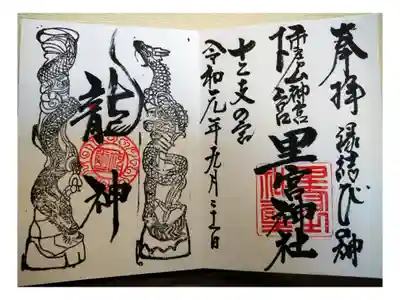 奉拝
縁結びの神
市房山神宮
下宮
里宮神社
十二支の宮
令和元年九月二十一日
龍神